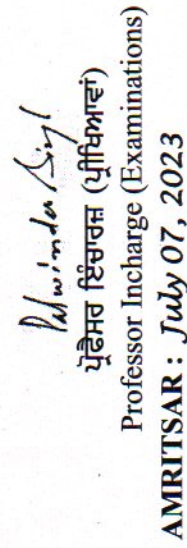 Palwinder Singh
ਪ੍ਰੋਫੈਸਰ ਇੰਚਾਰਜ (ਪ੍ਰੀਖਿਆਵਾਂ)
Professor Incharge (Examinations)
AMRITSAR : July 07, 2023